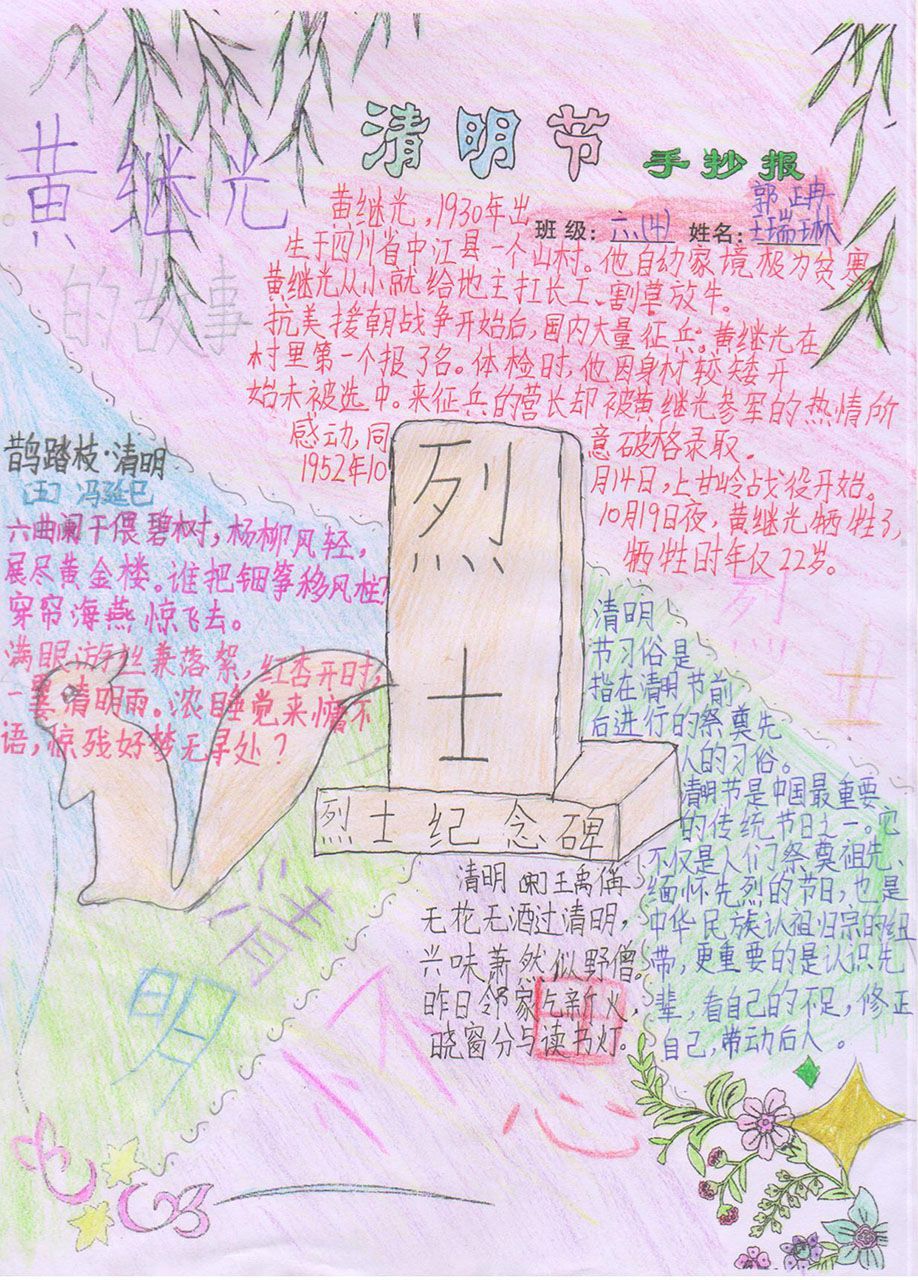 清明节
手抄报
班级：六(4) 姓名：
王瑞琳
黄继光
的故事
黄继光，1930年出
生于四川省中江县一个山村。他自幼家境极为贫寒，
黄继光从小就给地主打长工、割草放牛。
抗美援朝战争开始后，国内大量征兵。黄继光在
村里第一个报了名。体检时，他因身材较矮开
始未被选中。来征兵的营长却被黄继光参军的热情所
感动，同意破格录取。
1952年10月14日，上甘岭战役开始。
10月19日夜，黄继光牺牲了，
牺牲时年仅22岁。
鹊踏枝·清明
[五] 冯延巳
六曲阑干偎碧树，杨柳风轻，
展尽黄金楼。谁把钿筝移风柱？
穿帘海燕惊飞去。
满眼游丝兼落絮，红杏开时，
一霎清明雨。浓睡觉来慵不
语，惊残好梦无寻处？
烈
士
烈士纪念碑
烈
士
清明
节习俗是
指在清明节前
后进行的祭奠先
人的习俗。
清明节是中国最重要
的传统节日之一。它
不仅是人们祭奠祖先、
缅怀先烈的节日，也是
中华民族认祖归宗的纽
带，更重要的是认识先
辈，看自己的不足，修正
自己，带动后人。
清明 王禹偁
无花无酒过清明，
兴味萧然似野僧。
昨日邻家乞新火，
晓窗分与读书灯。
清
明
心